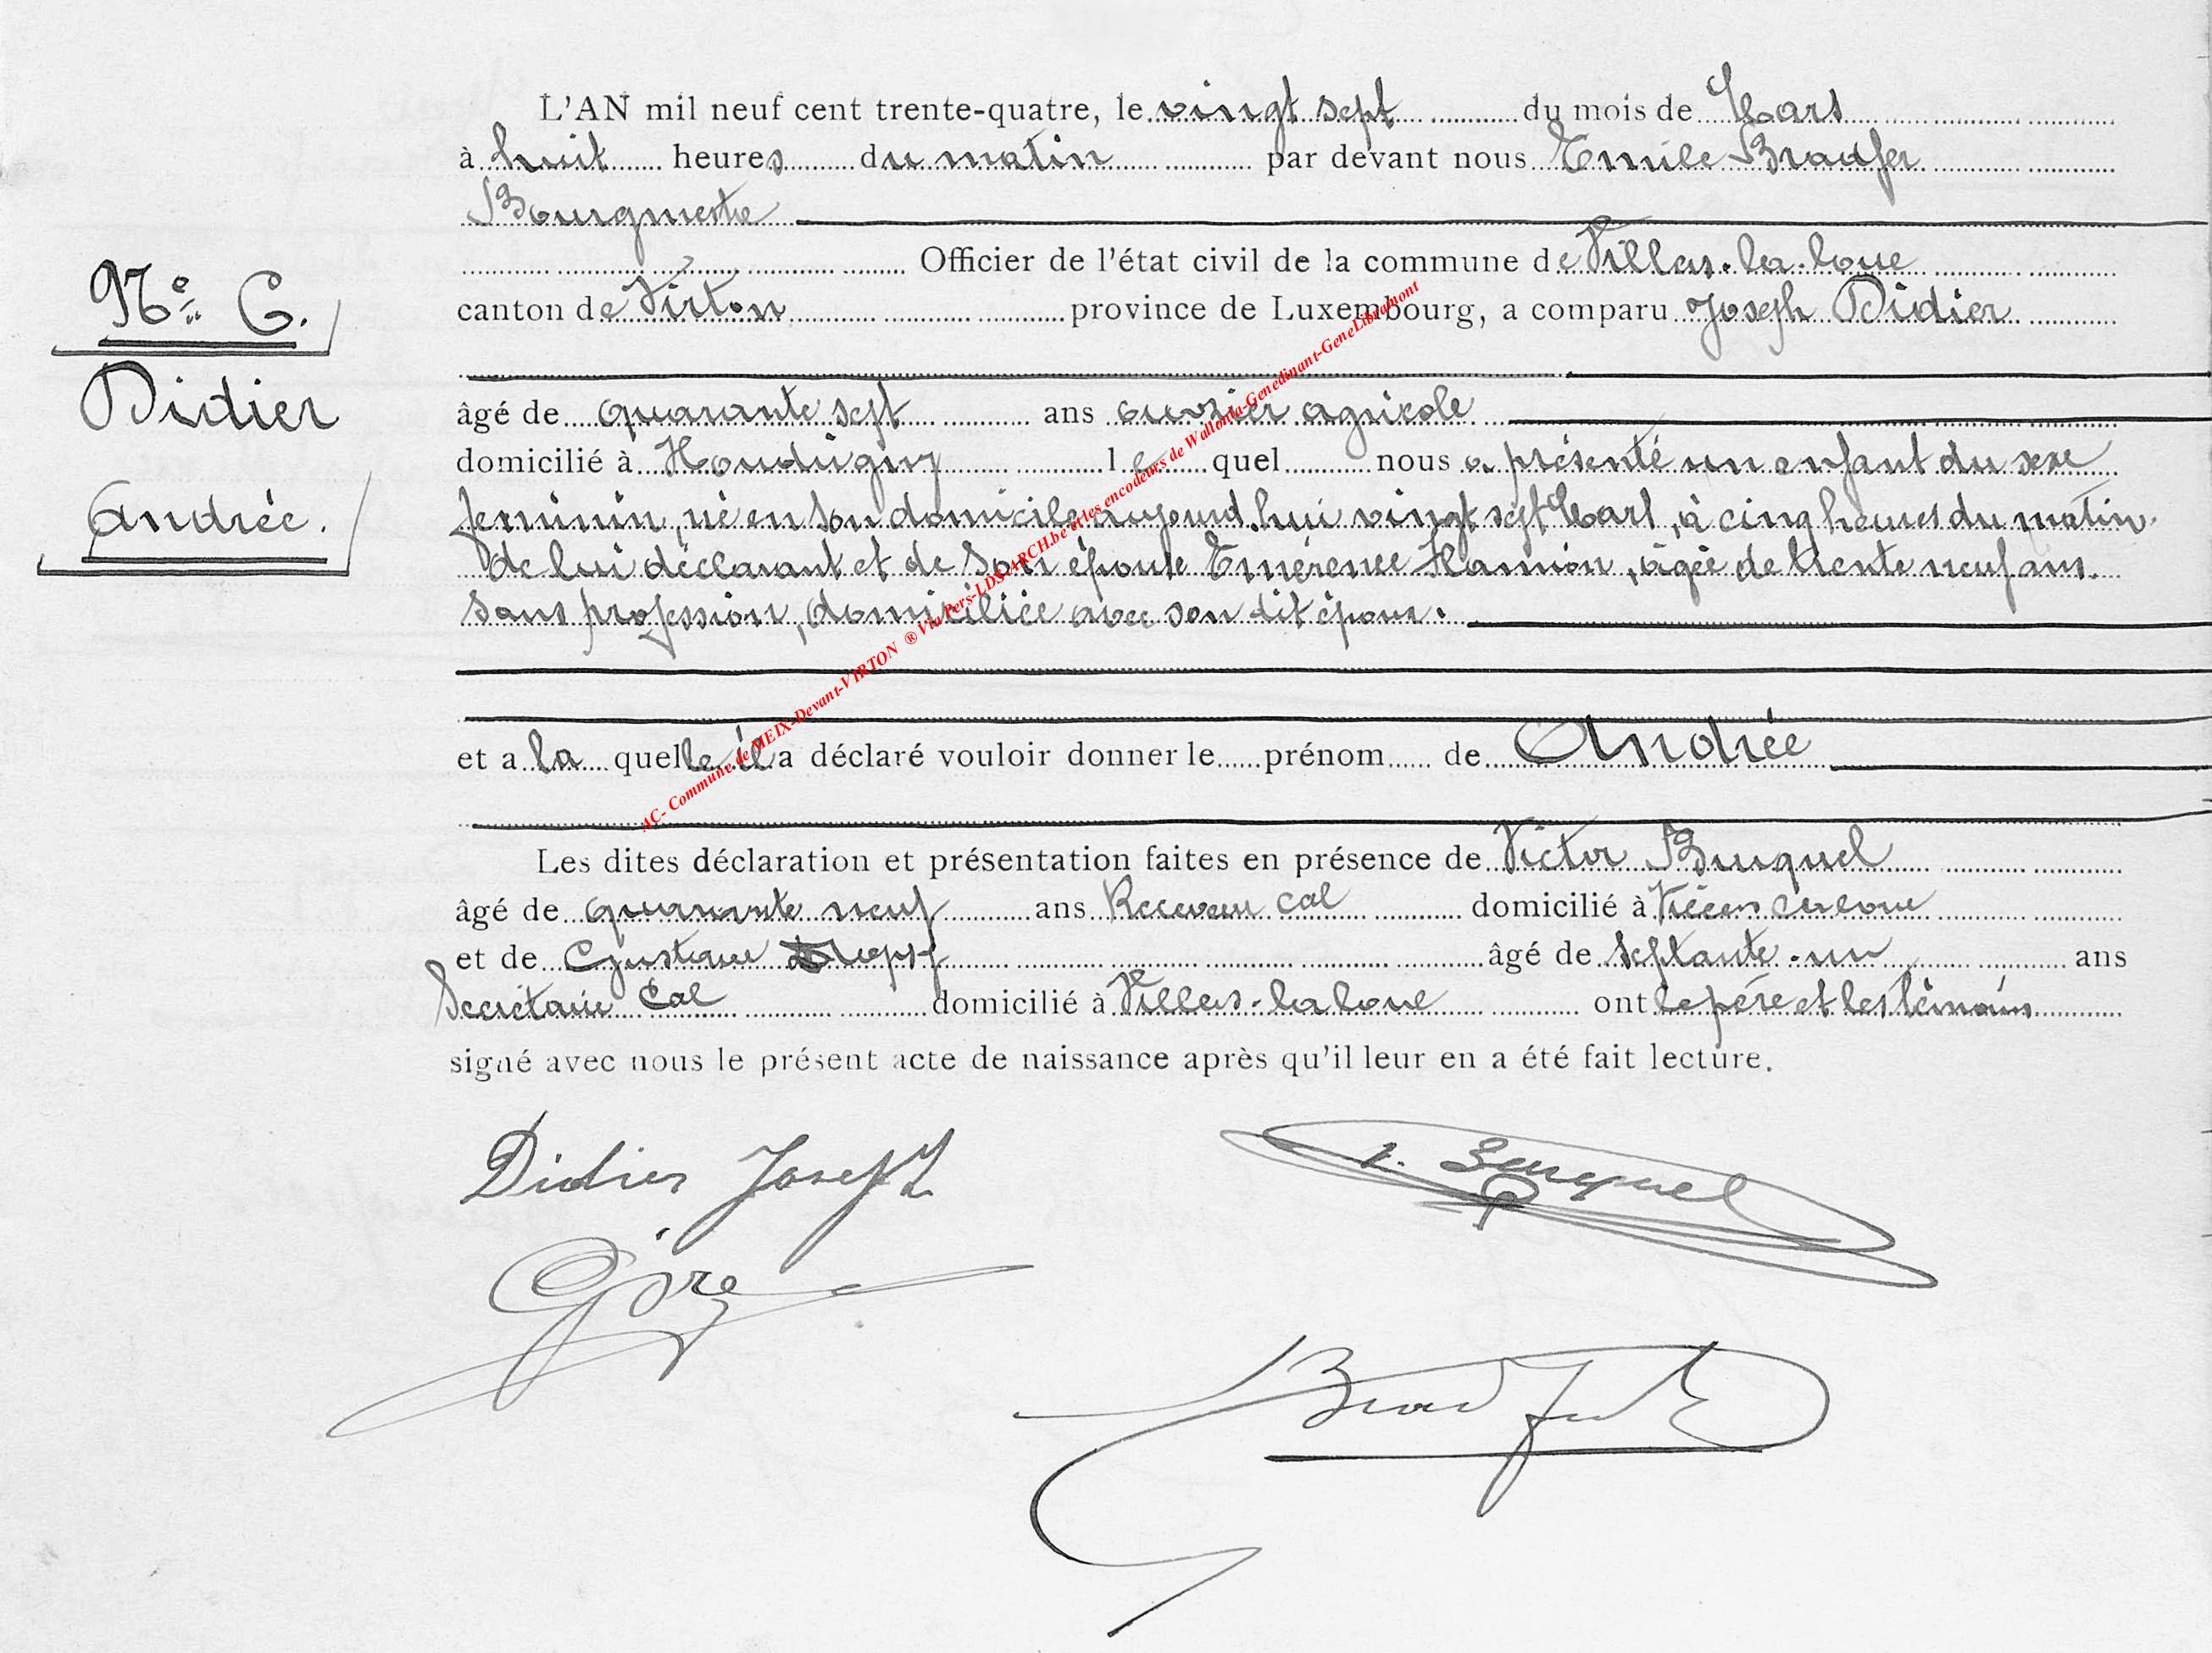 L'AN mil neuf cent trente-quatre, le vingt sept du mois de Mars
à huit heures du matin par devant nous Emile Bradfer
Bourgmestre
Officier de l'état civil de la commune de Villers-la-loue
canton de Virton province de Luxembourg, a comparu Joseph Didier
âgé de quarante sept ans ouvrier agricole
domicilié à Houdrigny lequel nous a présenté un enfant du sexe
feminin, né en son domicile aujourd'hui vingt sept Mars, à cinq heures du matin
de lui déclarant et de son épouse Emérence Hamion, âgée de trente neuf ans.
sans profession, domiciliée avec son dit époux.
et a la quelle il a déclaré vouloir donner le prénom de Andrée
Les dites déclaration et présentation faites en présence de Victor Buquel
âgé de quarante neuf ans Receveur cal domicilié à
et de Gustave âgé de septante-un ans
Secrétaire Cal domicilié à Villers-la loue ont le père et les témoins
signé avec nous le présent acte de naissance après qu'il leur en a été fait lecture.
Didier Joseph
Nº 6.
Didier
Andrée.
AC- Commune de MEIX-Devant-VIRTON ® Via Pers-LDS-ARCH.be et les encodeurs de Wallonia-Genedinant-GeneLibramont